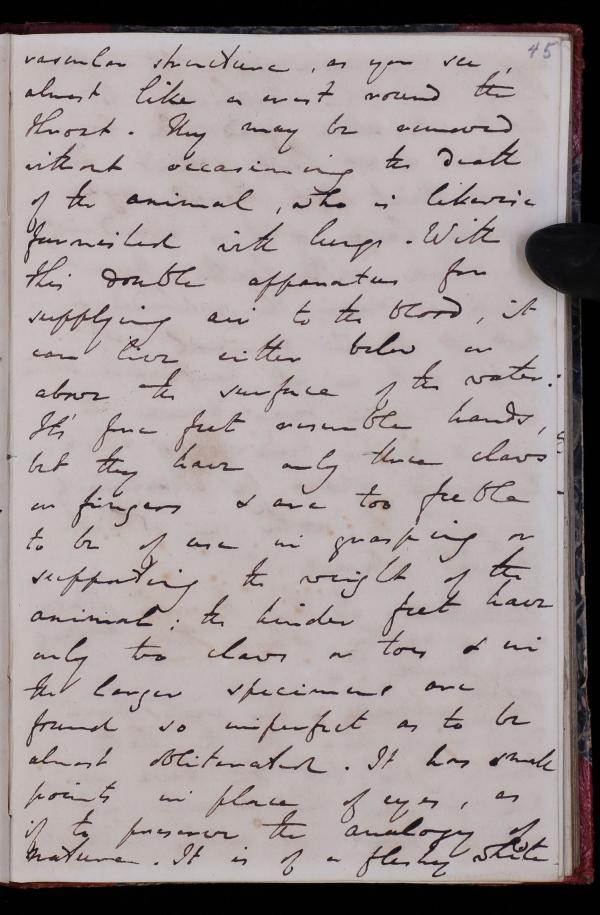 45
vascular structure, as you see,
almost like a crest round the
throat. They may be removed
without occasioning the death
of the animal, who is likewise
furnished with lungs. With
this double apparatus for
supplying air to the blood, it
can live either below or
above the surface of the water.
It's fore feet resemble hands,
but they have only three claws
or fingers & are too feeble
to be of use in grasping or
supporting the weight of the
animal; the hinder feet have
only two claws or toes & in
the larger specimens are
found so imperfect as to be
almost obliterated. It has small
points in place of eyes, as
if to preserve the analogy of
nature. It is of a fleshy white